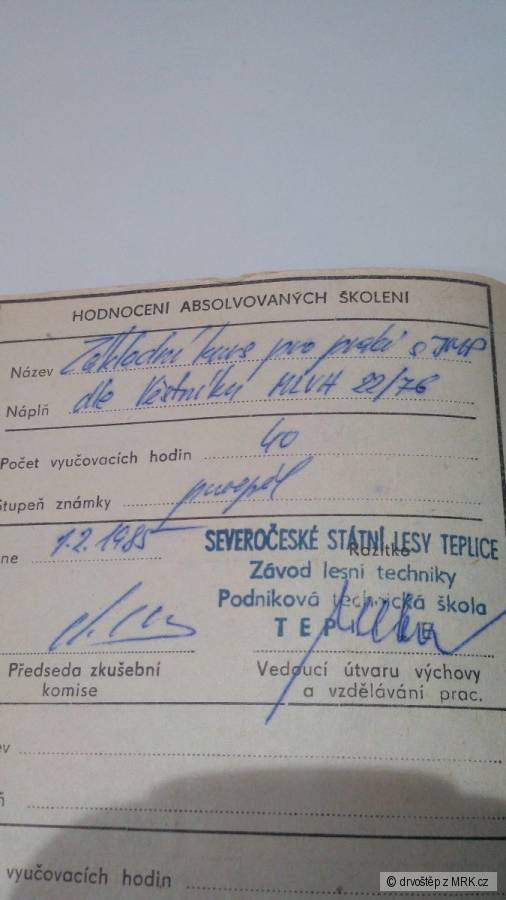 HODNOCENÍ ABSOLVOVANÝCH ŠKOLENÍ
Název Základní kurs pro práci s JMP
Náplň dle Věstníku MLVH 22/76
Počet vyučovacích hodin 40
Stupeň známky prospěl
ne 1.2.1985
SEVEROČESKÉ STÁTNÍ LESY TEPLICE
Razítko
Závod lesní techniky
Podniková technická škola
TEPLICE
Předseda zkušební
komise
Vedoucí útvaru výchovy
a vzdělávání prac.
ev
ň
vyučovacích hodin
© drvoštěp z MRK.cz